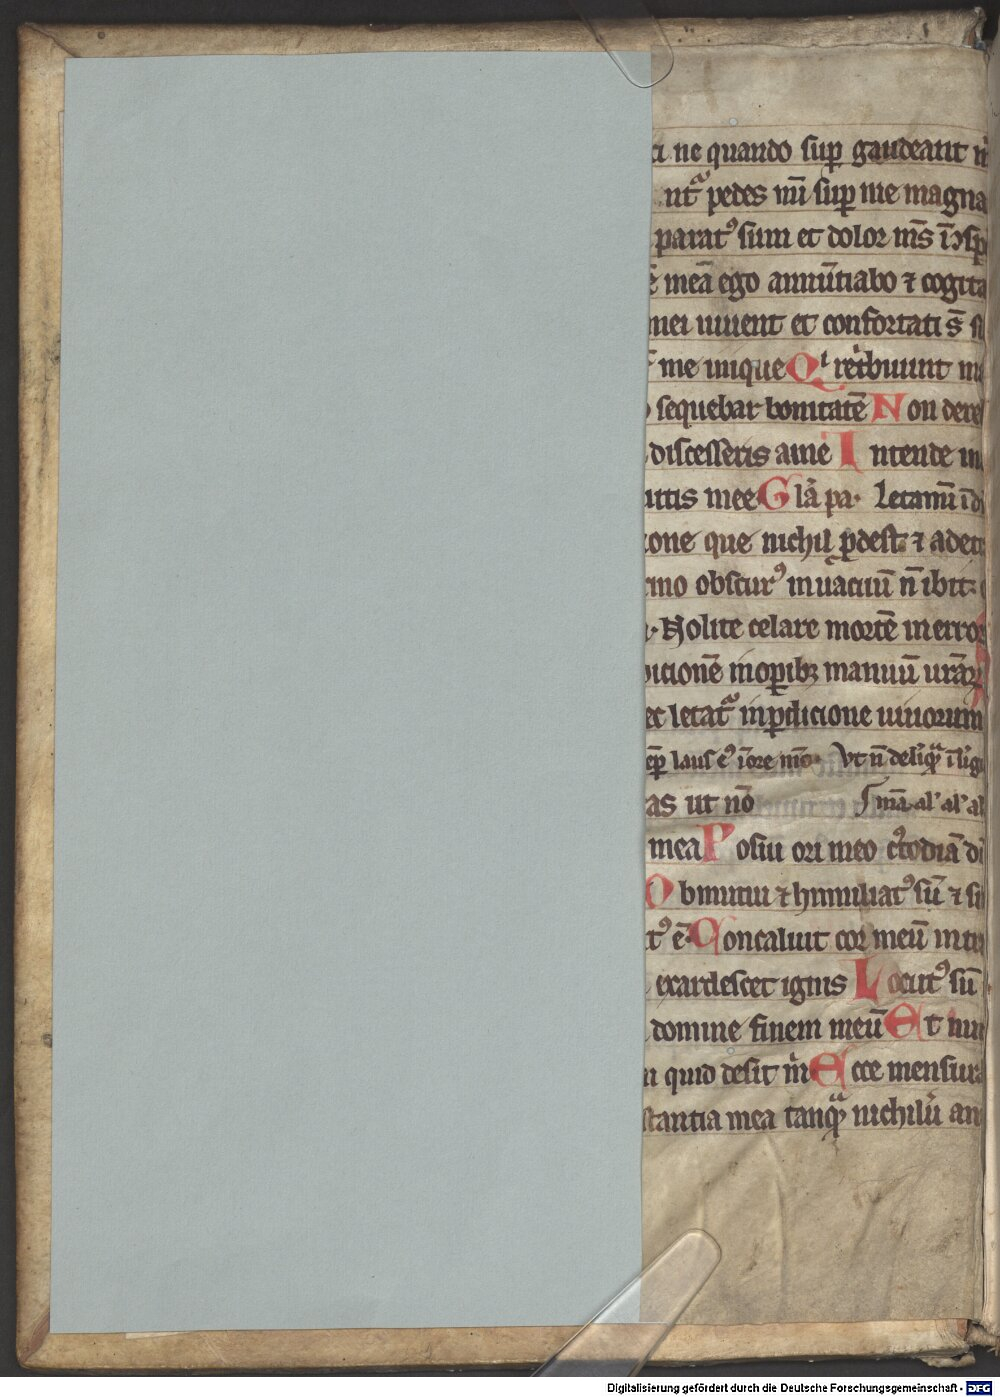 ne quando sup gaudeant
pedes mei sup me magna
parat⁹ sum et dolor m̄s
meā ego annūtiabo ⁊ cogita
mei uiuent et confortati s̄
me inique Qⁱ
sequebar bonitatē Non dere
discesseris a me Intende in
utis mee Gl̄a pa· Letamī
que nichil ꝓdest ⁊ adetr
obscur⁹ in uacuū n̄ ibit
Nolite celare mortē in error
in oꝑibꝫ manuū urāꝝ
letat̄ in ꝑdicione uiuorum
laus e⁹ ī ore meo· Vt n̄
as ut nō al' al' al
mea Posui ori meo
Obmutui ⁊ humiliat⁹ sū ⁊ si
t⁹ ē Concaluit cor meū intr
exardescet ignis Locut⁹ sū
domine finem meū Et nu
quid desit m̄ Ecce mensura
stantia mea tanq̄ nichilū an
Digitalisierung gefördert durch die Deutsche Forschungsgemeinschaft - DFG